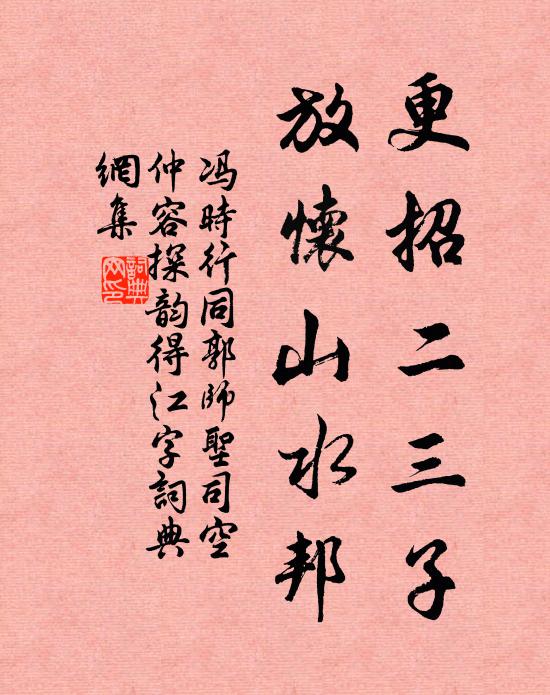 更招二三子
放懷山水邦
冯時行同郭師聖司空
仲容探韵得江字詞典
網集
詞典網印